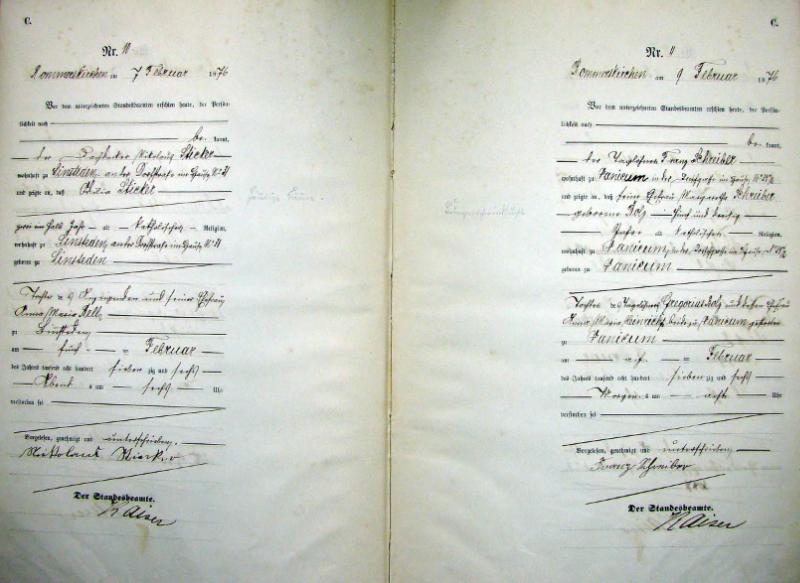 C.
Nr. 10
Rommerskirchen am 7 Februar 1876
Vor dem unterzeichneten Standesbeamten erschien heute, der Persön-
lichkeit nach
be kannt,
der Nikolaus Sticker
wohnhaft zu Sinsteden an der Dorfstraße im Hause No 21
und zeigte an, daß Maria Sticker
zwei ein halb Jahr alt katholischer Religion,
wohnhaft zu Sinsteden an der Dorfstraße im Hause No 21
geboren zu Sinsteden
Tochter des Anzeigenden und seiner Ehefrau
Anna Maria
zu Sinsteden
am fünf ten Februar
des Jahres tausend acht hundert sieben zig und sechs
Abends um sechs Uhr
verstorben sei
Vorgelesen, genehmigt und unterschrieben.
Der Standesbeamte.
Kaiser
C.
Nr. 11
Rommerskirchen am 9 Februar 1876
Vor dem unterzeichneten Standesbeamten erschien heute, der Persön-
lichkeit nach
be kannt,
der Tagelöhner Franz Schreiber
wohnhaft zu Vanicum in der Dorfstraße im Hause No
und zeigte an, daß seine Ehefrau Margaretha Schreiber
geborene fünf und dreißig
Jahre alt katholischer Religion,
wohnhaft zu Vanicum, in der Dorfstraße im Hause No
geboren zu Vanicum
Tochter des Tagelöhners Gregorius und dessen Ehefrau
Anna Maria Heinrichs beide zu Vanicum
zu Vanicum
am ten Februar
des Jahres tausend acht hundert sieben zig und sechs
Morgens um acht Uhr
verstorben sei
Vorgelesen, genehmigt und unterschrieben
Franz Schreiber
Der Standesbeamte.
Kaiser